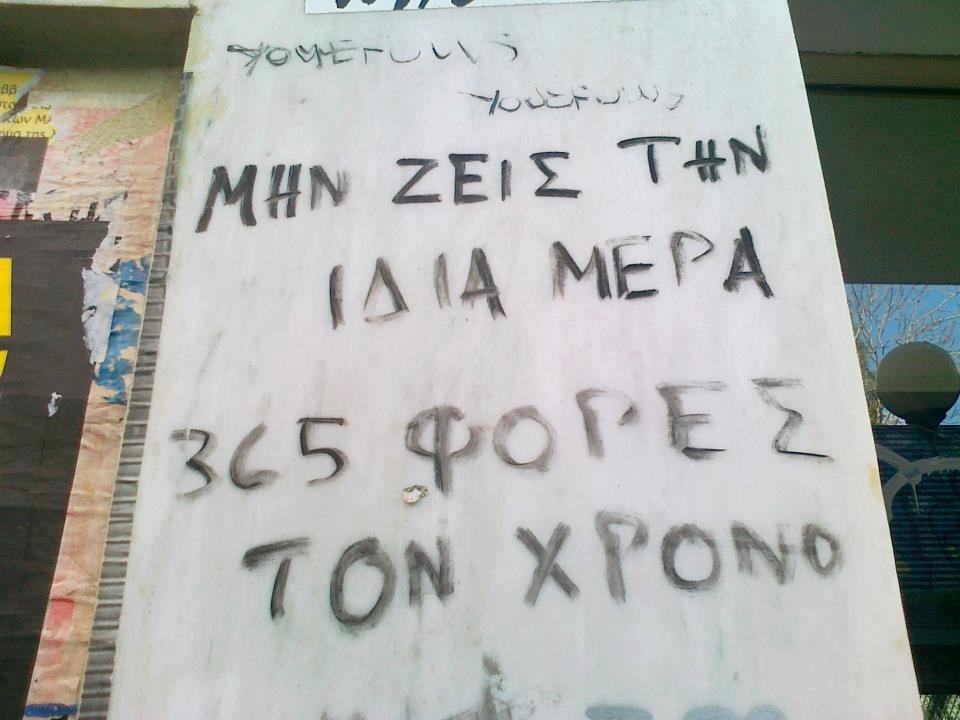 ΜΗΝ ΖΕΙΣ ΤΗΝ
ΙΔΙΑ ΜΕΡΑ
365 ΦΟΡΕΣ
ΤΟΝ ΧΡΟΝΟ